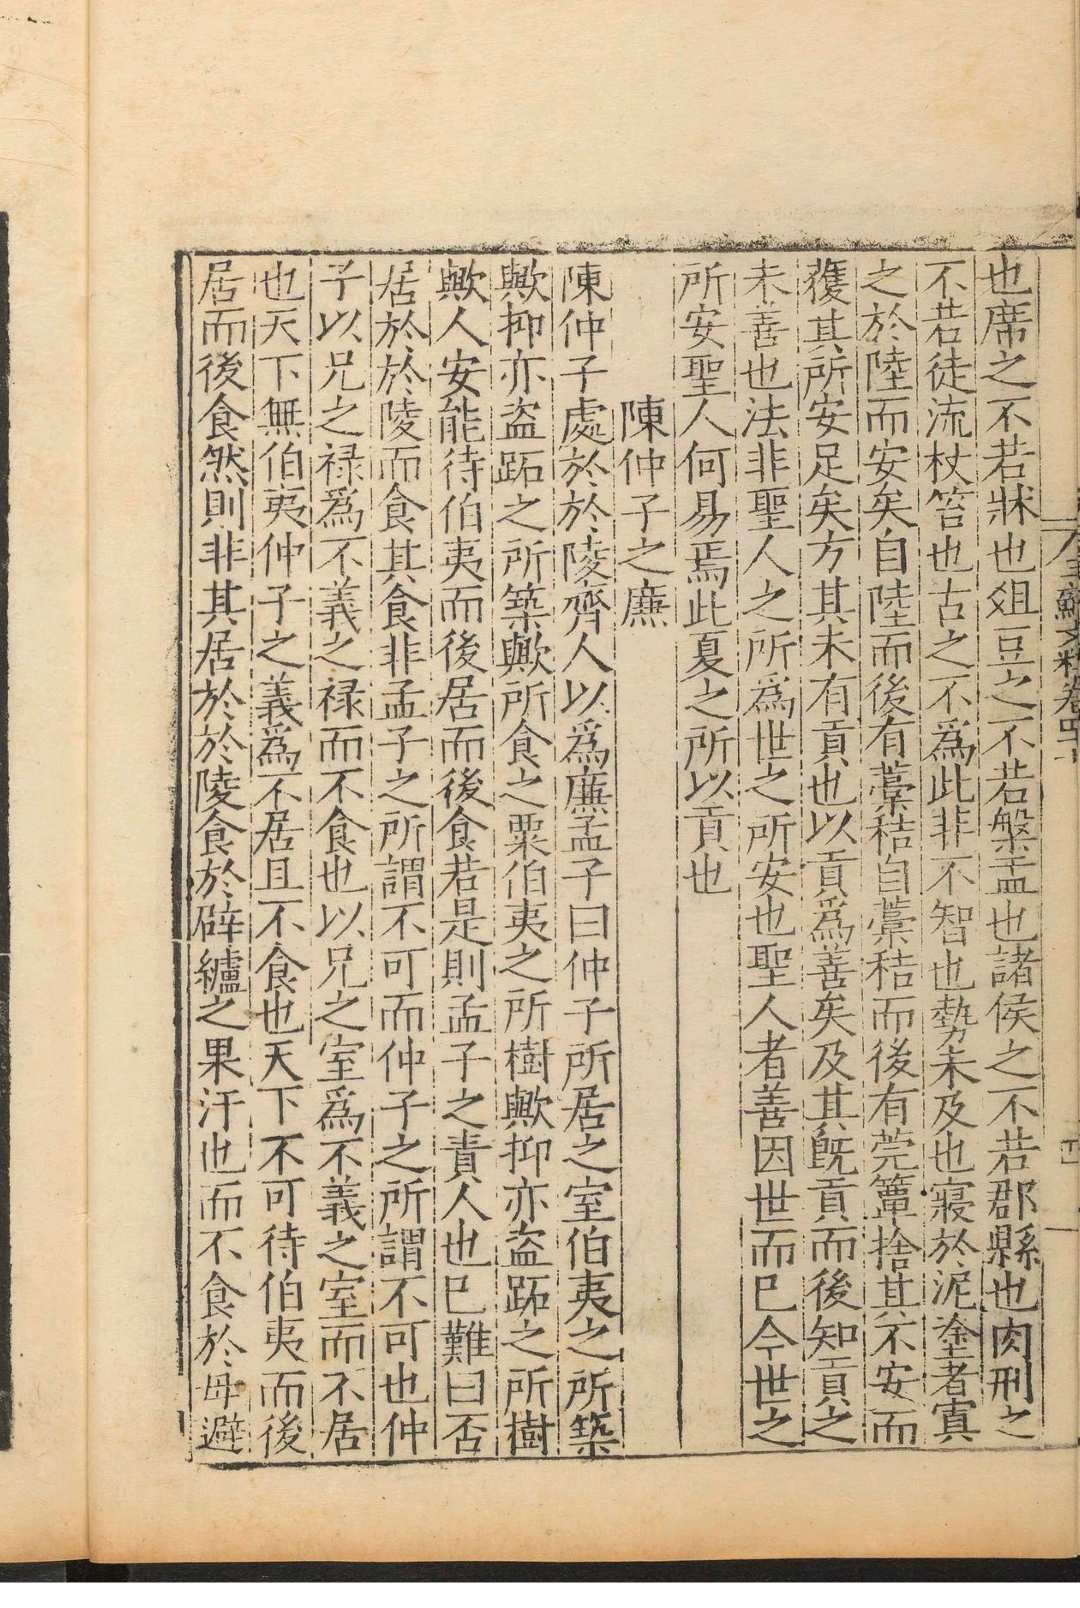 也席之不若牀也俎豆之不若槃盂也諸侯之不若郡縣也肉刑之
不若徒流杖笞也古之不為此非不智也勢未及也寢於泥塗者寘
之於陸而安矣自陸而後有藁秸自藁秸而後有莞簟捨其不安而
獲其所安足矣方其未有貢也以貢爲善矣及其旣貢而後知貢之
未善也法非聖人之所爲世之所安也聖人者善因世而已今世之
所安聖人何易焉此夏之所以貢也
陳仲子之廉
陳仲子處於於陵齊人以爲廉孟子曰仲子所居之室伯夷之所築
歟抑亦盗跖之所築歟所食之粟伯夷之所樹歟抑亦盗跖之所樹
歟人安能待伯夷而後居而後食若是則孟子之責人也已難曰否
居於於陵而食其食非孟子之所謂不可而仲子之所謂不可也仲
子以兄之禄爲不義之禄而不食也以兄之室爲不義之室而不居
也天下無伯夷仲子之義爲不居且不食也天下不可待伯夷而後
居而後食然則非其居於於陵食於辟纑之果汙也而不食於母避